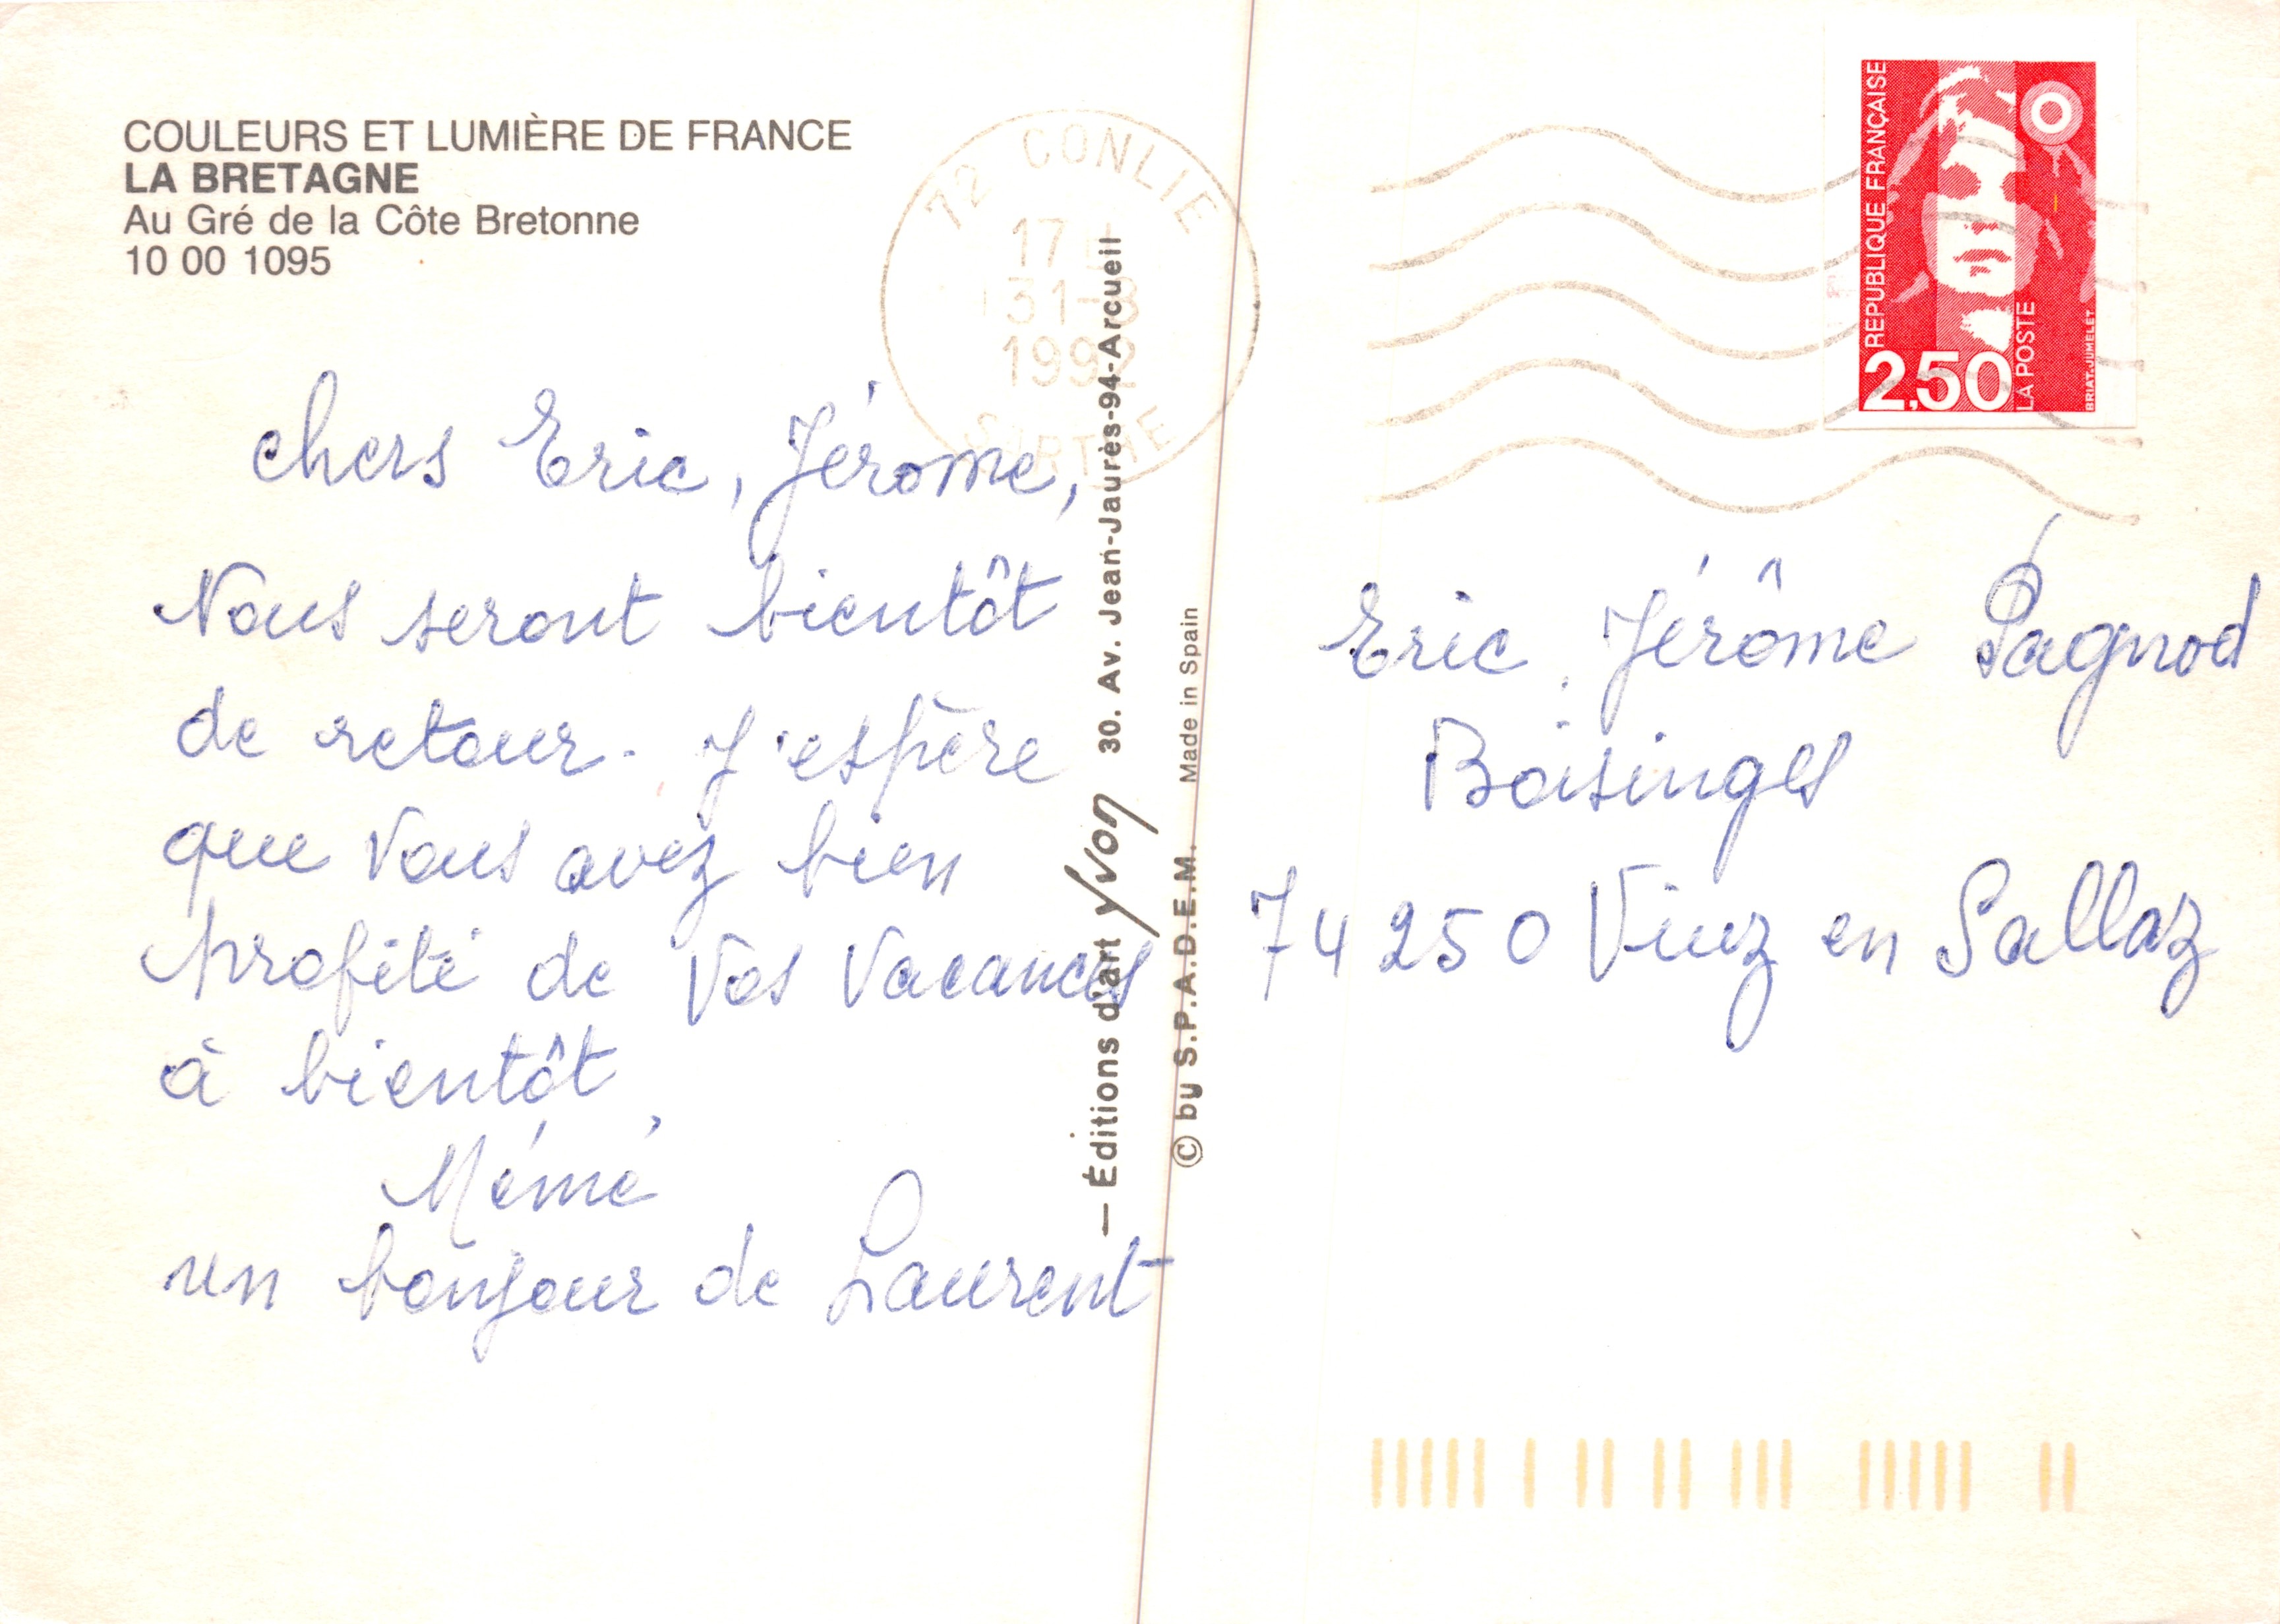 COULEURS ET LUMIÈRE DE FRANCE
LA BRETAGNE
Au Gré de la Côte Bretonne
10 00 1095
72 CONLIE
17
31-8
1992
SARTHE
REPUBLIQUE FRANÇAISE
2,50
LA POSTE
BRIAT-JUMELET
chers Eric, Jérome,
Nous seront bientôt
de retour. J'espère
que vous avez bien
profité de vos vacances
à bientôt
Mémé
un bonjour de Laurent
— Éditions d'art yvon 30. Av. Jean-Jaurès-94-Arcueil
© by S.P.A.D.E.M. Made in Spain
Eric, Jérôme Pagnod
Boisinges
74250 Viuz en Sallaz